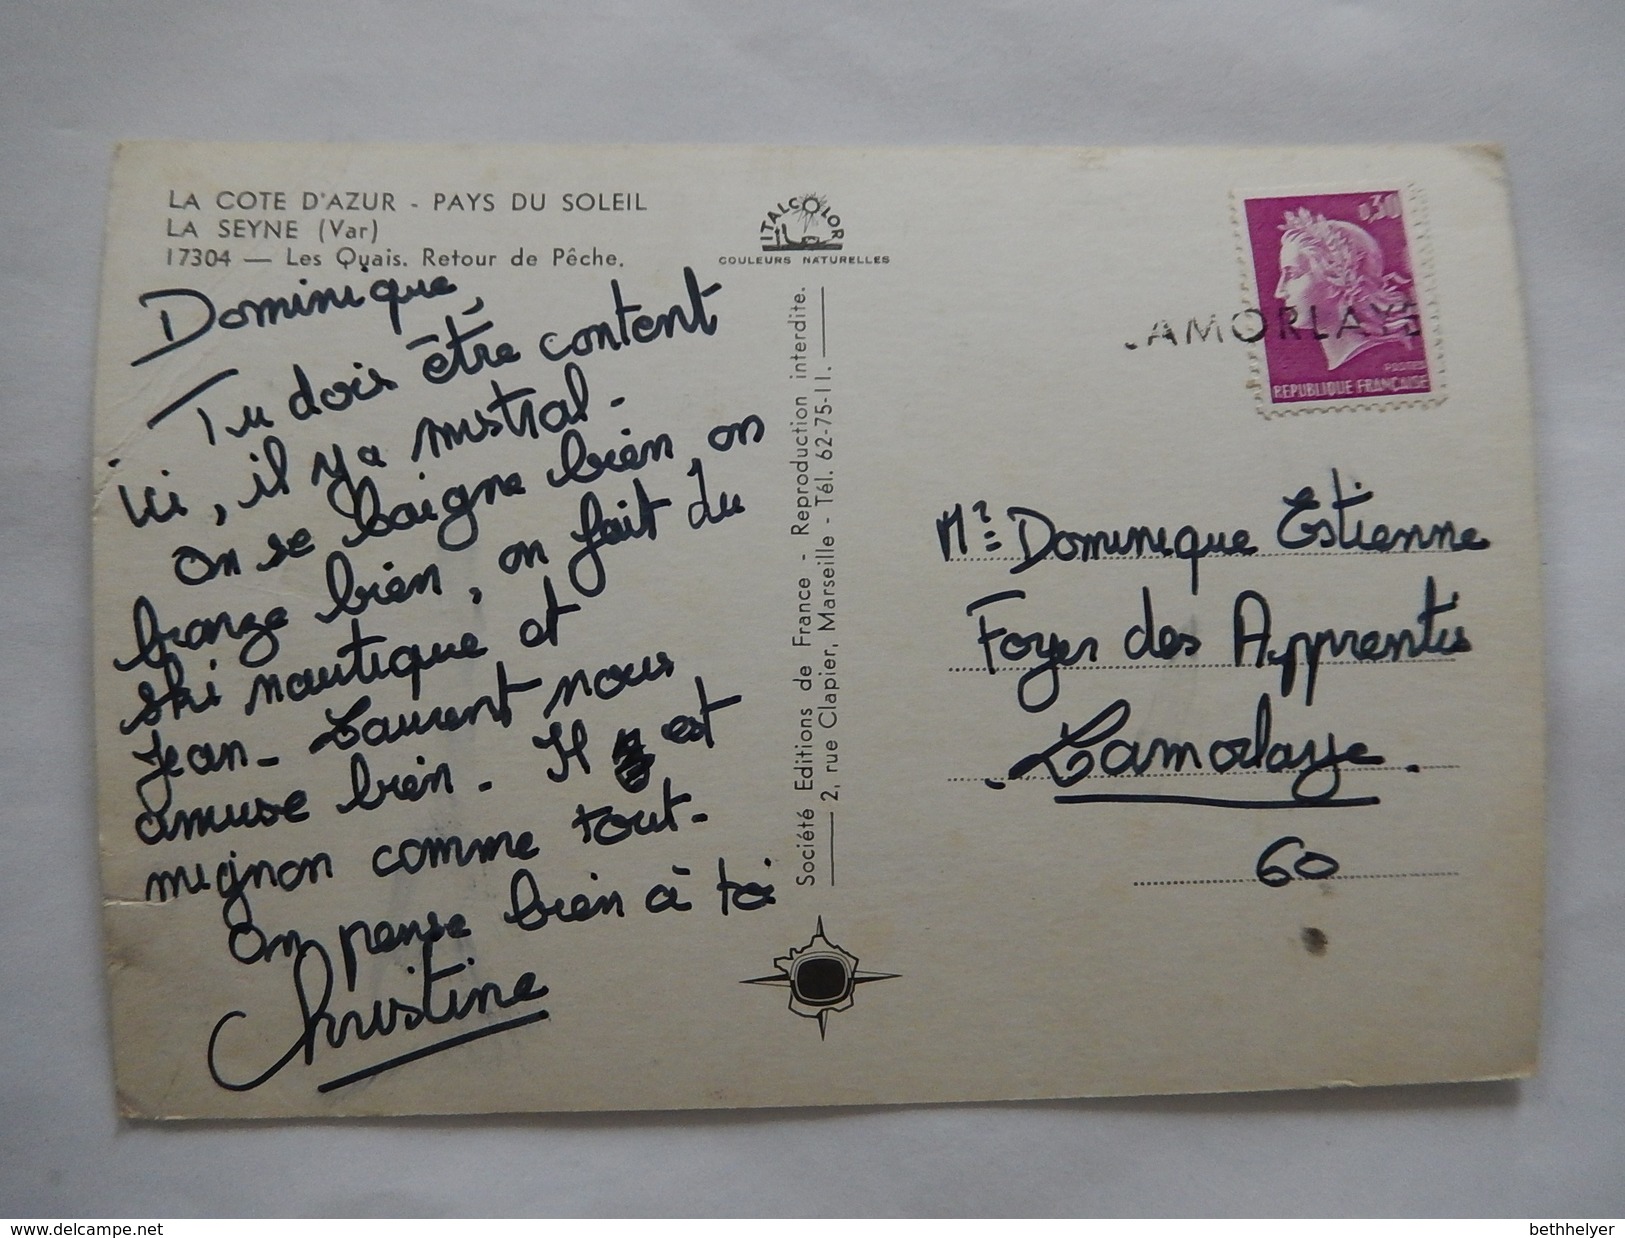 LA COTE D'AZUR - PAYS DU SOLEIL
LA SEYNE (Var)
17304 — Les Quais. Retour de Pêche.
Dominique,
Tu dois être content
ici, il y a mistral.
On se baigne bien, on
bronze bien, on fait du
ski nautique et
Jean-Laurent nous
amuse bien. Il est
mignon comme tout.
On pense bien à toi
Christine
ITALCOLOR
COULEURS NATURELLES
Société Editions de France - Reproduction interdite.
2, rue Clapier, Marseille - Tél. 62-75-11.
0,30
POSTES
REPUBLIQUE FRANÇAISE
LAMORLAYE
Mr Dominique Estienne
Foyer des Apprentis
Lamorlaye.
60
delcampe.net
bethhelyer